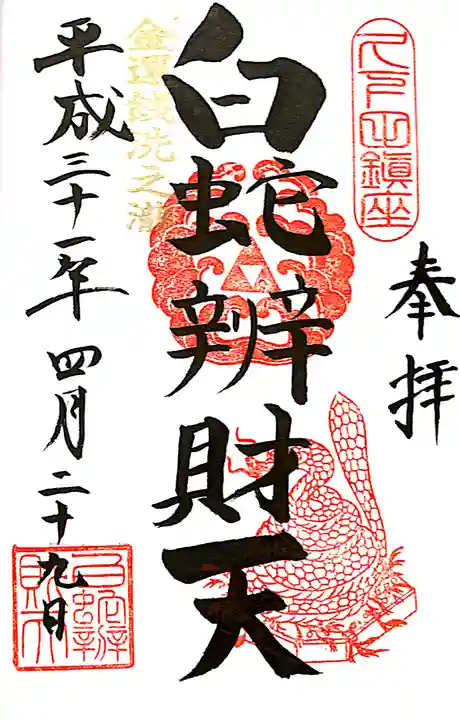 鎮座
奉拝
白蛇辨財天
金運銭洗之瀧
平成三十一年四月二十九日
白蛇辨財天